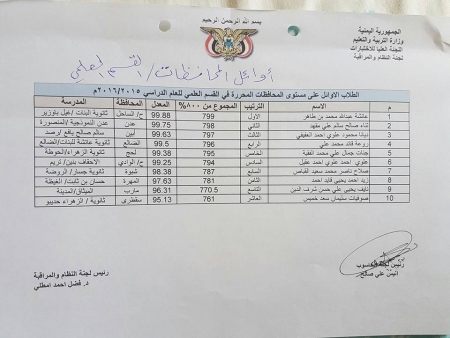 بسم الله الرحمن الرحيم
الجمهورية اليمنية
وزارة التربية والتعليم
اللجنة العليا للاختبارات
لجنة النظام والمراقبة
أوائل المحافظات / القسم العلمي
الطلاب الاوائل على مستوى المحافظات المحررة في القسم العلمي للعام الدراسي ٢٠١٥/٢٠١٦م
م الاسم الترتيب المجموع من ٨٠٠% المعدل المحافظة المدرسة
1 عائشة عبدالله محمد بن طاهر الاول 799 99.88 ح/ الساحل ثانوية البنات/ غيل باوزير
2 صالح سالم علي مهد الثاني 798 99.75 عدن عدن النموذجية/المنصورة
3 ديانا محمود علوي احمد العفيفي الثالث 797 99.63 أبين سالم صالح يافع /رصد
4 روعة قائد محمد علي الرابع 796 99.5 الضالع ثانوية عائشة للبنات/الضالع
5 جنات جمال علي محمد الخامس 795 99.38 لحج ثانوية الزهراء/الحوطة
6 علوي احمد عقيل السادس 794 99.25 ح/ الوادي الاحقاف بنين/ تريم
7 صلاح ناصر محمد سعيد السابع 787 98.38 شبوة ثانوية جسار/ الروضة
8 زيد احمد يحيى قايد احمد الثامن 781 97.63 المهرة حسان بن ثابت/ الغيظة
9 نايف يحيى علي حسن شرف الدين التاسع 770.5 96.31 مارب الميثاق/المدينة
10 سليمان سعد خميس العاشر 761 95.13 سقطرى ثانوية / الزهراء حديبو
رئيس لجنة الحاسوب
أنيس علي صالح
رئيس لجنة النظام والمراقبة
د. فضل احمد